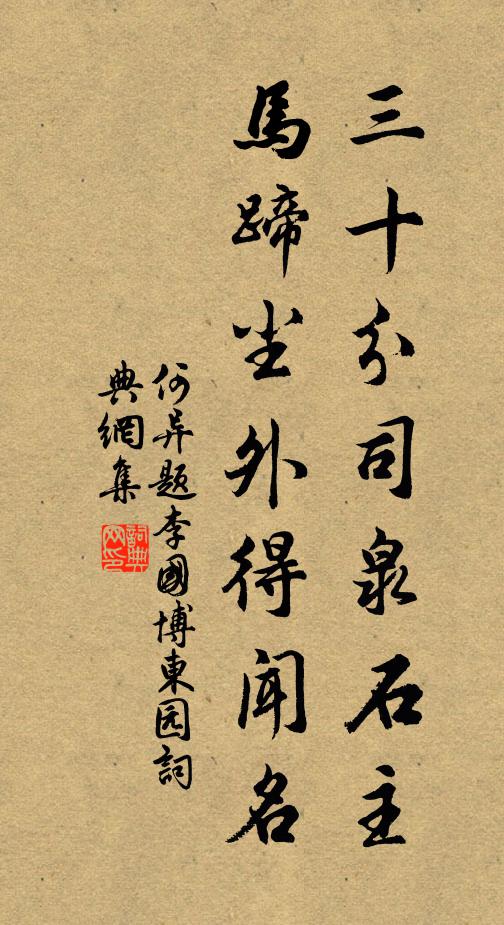 三十分司泉石主
馬蹄尘外得闻名
何异题李國博東园詞
典網集
詞典網印